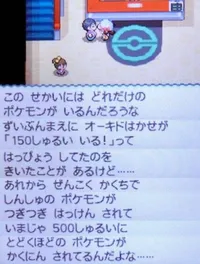 この せかいには どれだけの
ポケモンが いるんだろうな
ずいぶんまえに オーキドはかせが
「150しゅるい いる!」って
はっぴょう してたのを
きいたことが あるけど⋯⋯
あれから ぜんこく かくちで
しんしゅの ポケモンが
つぎつぎ はっけん されて
いまじゃ 500しゅるいに
とどくほどの ポケモンが
かくにん されてるんだよな⋯⋯